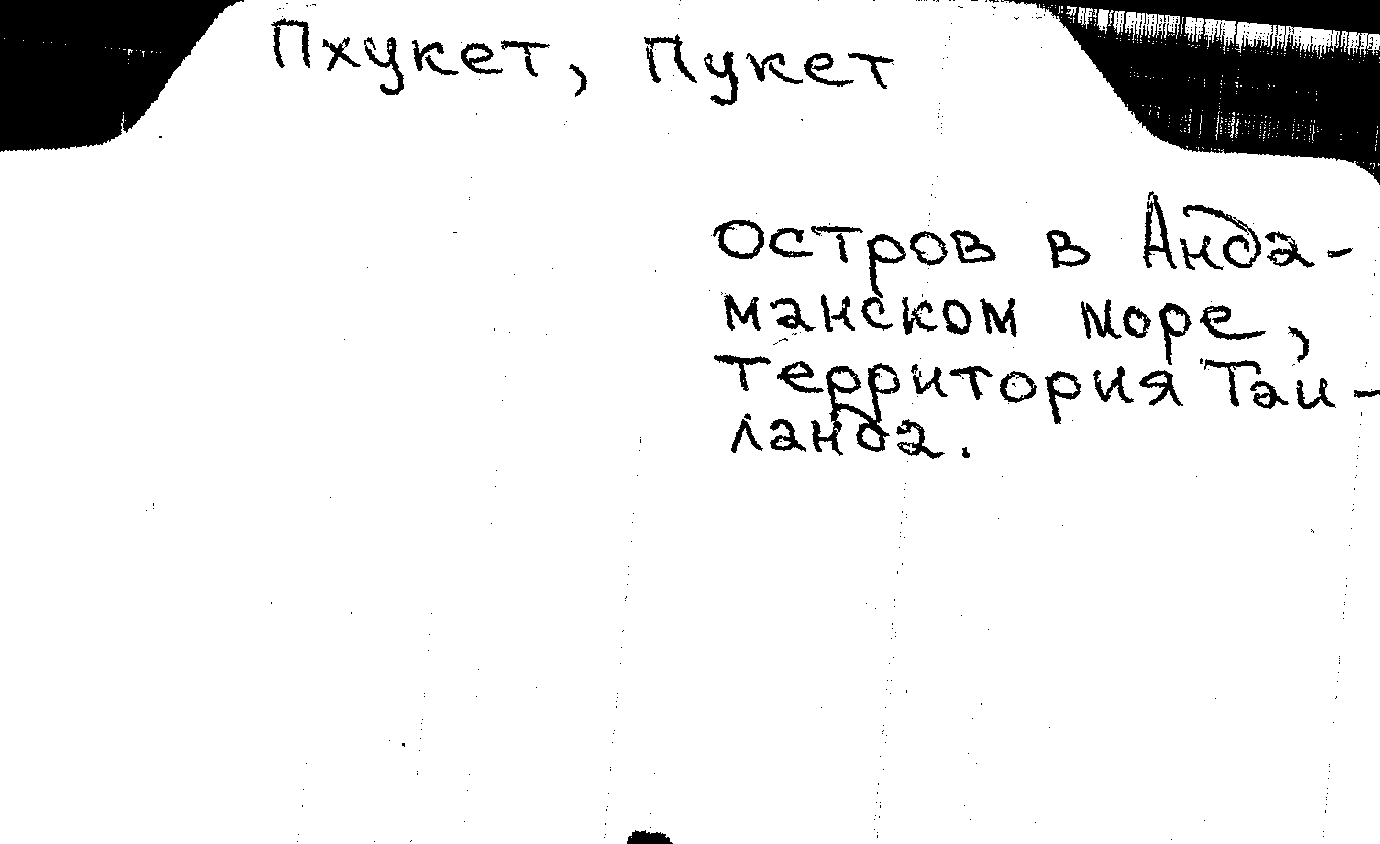 Пхукет, Пукет
остров в Анда-
манском море,
территория Таи-
ланда.